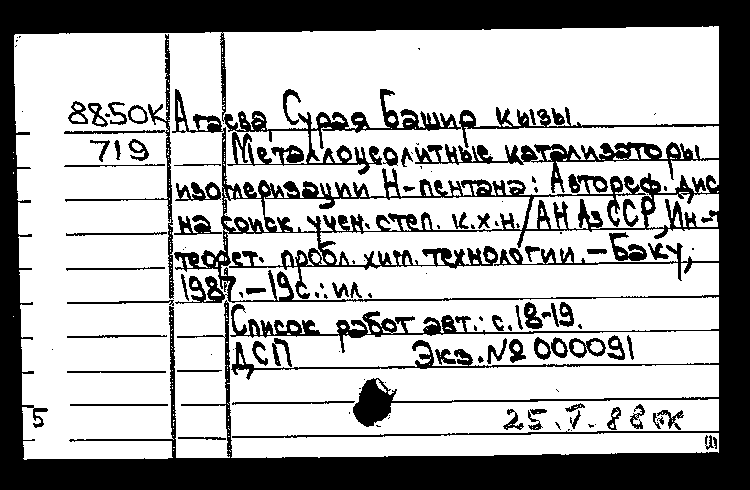 88-50К Агаева, Сурая Башир кызы.
719 Металлоцеолитные катализаторы
изомеризации Н-пентана: Автореф. дис
на соиск. учен. степ. к.х.н./АН АзССР, Ин-т
теорет. пробл. хим. технологии.-Баку,
1987.-19с.: ил.
Список работ авт.: с.18-19.
ДСП Экз.№ 000091
5 25.V.88
(1)